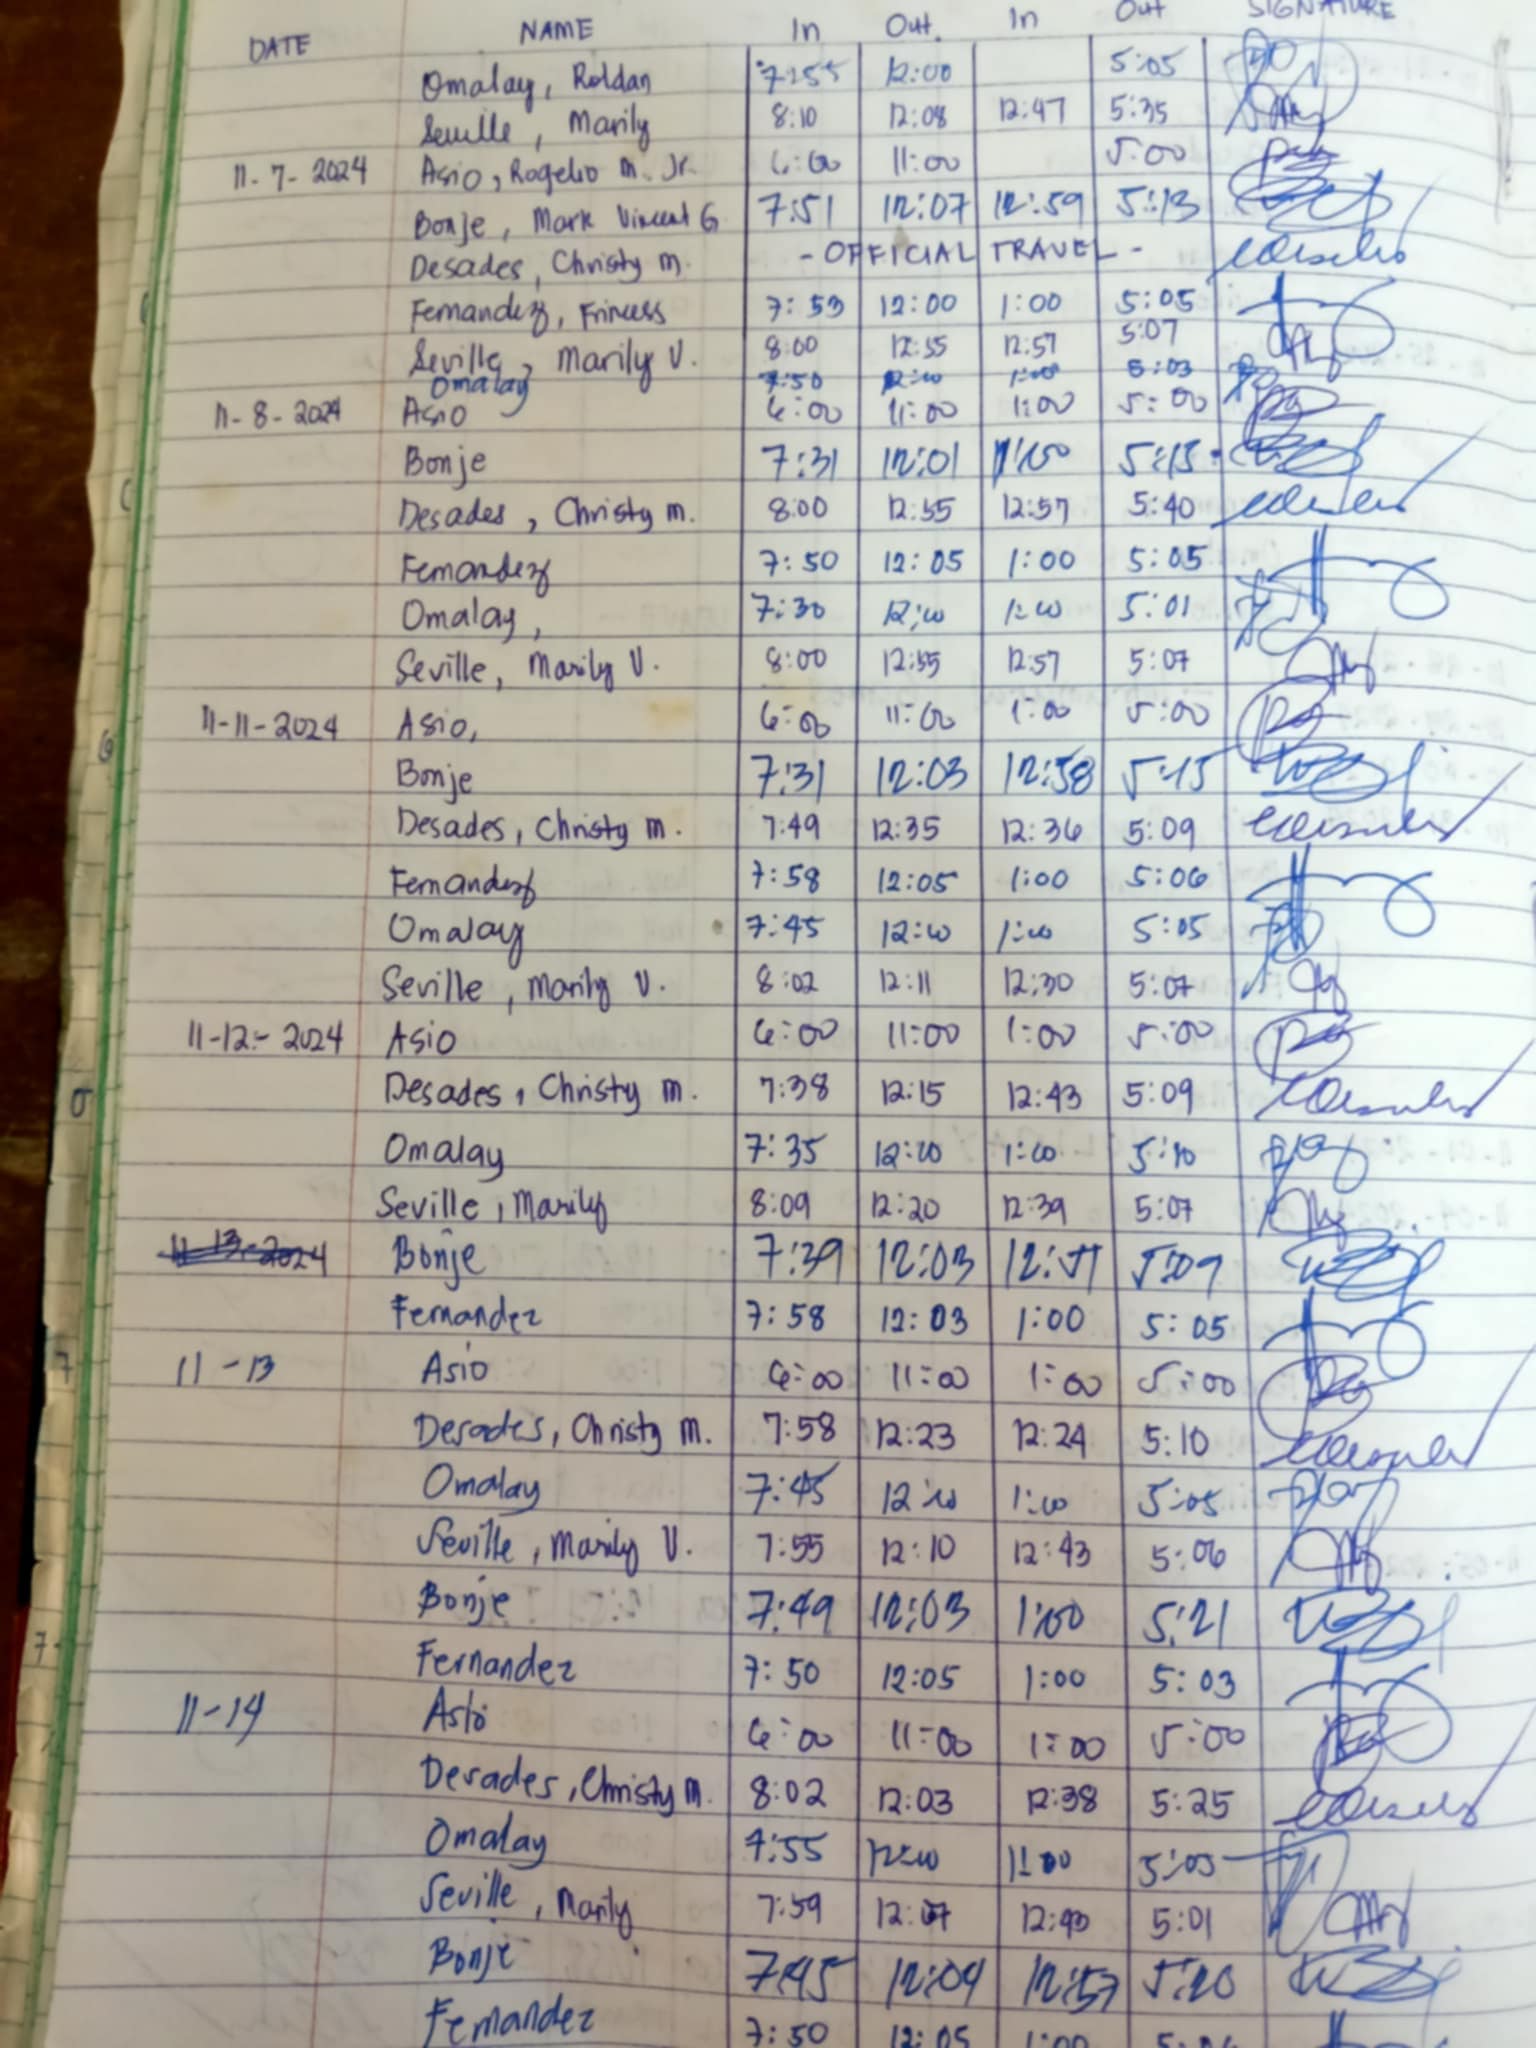 DATE NAME In Out. In Out SIGNATURE
Omalay, Roldan 7:55 12:00 5:05
Seville, Marily 8:10 12:08 12:47 5:35
11-7-2024 Asio, Rogelio M. Jr. 6:00 11:00 5:00
Bonje, Mark Vincent G 7:51 12:07 12:59 5:13
Desades, Christy M. - OFFICIAL TRAVEL -
Fernandez, Princess 7:53 12:00 1:00 5:05
Seville, Marily V. 8:00 12:55 12:57 5:07
Omalay 7:50 12:00 1:00 5:03
11-8-2024 Asio 6:00 11:00 1:00 5:00
Bonje 7:31 12:01 1:00 5:15
Desades, Christy M. 8:00 12:55 12:57 5:40
Fernandez 7:50 12:05 1:00 5:05
Omalay, 7:30 12:00 1:00 5:01
Seville, Marily V. 8:00 12:55 12:57 5:07
11-11-2024 Asio, 6:00 11:00 1:00 5:00
Bonje 7:31 12:03 12:58 5:15
Desades, Christy M. 7:49 12:35 12:36 5:09
Fernandez 7:58 12:05 1:00 5:06
Omalay 7:45 12:00 1:00 5:05
Seville, Marily V. 8:02 12:11 12:30 5:07
11-12-2024 Asio 6:00 11:00 1:00 5:00
Desades, Christy M. 7:38 12:15 12:43 5:09
Omalay 7:35 12:00 1:00 5:10
Seville, Marily 8:09 12:20 12:39 5:07
11-13-2024 Bonje 7:39 12:03 12:51 5:09
Fernandez 7:58 12:03 1:00 5:05
11-13 Asio 6:00 11:00 1:00 5:00
Desades, Christy M. 7:58 12:23 12:24 5:10
Omalay 7:45 12:00 1:00 5:05
Seville, Marily V. 7:55 12:10 12:43 5:06
Bonje 7:49 12:03 1:00 5:21
Fernandez 7:50 12:05 1:00 5:03
11-14 Asio 6:00 11:00 1:00 5:00
Desades, Christy M. 8:02 12:03 12:38 5:25
Omalay 7:55 12:00 1:00 5:05
Seville, Marily 7:59 12:07 12:43 5:01
Bonje 7:45 12:04 12:57 5:20
Fernandez 7:50 12:05 1:00